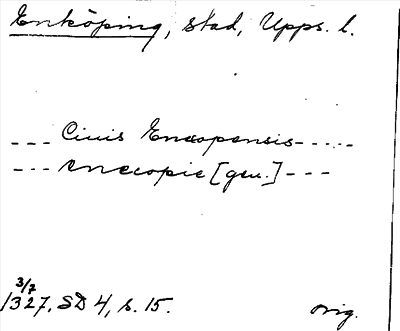 Enköping, stad, Upps. l.
--- Ciuis Enecopensis-----
--- enecopie [gen.] ---
3/7
1327. SD 4, s. 15. orig.